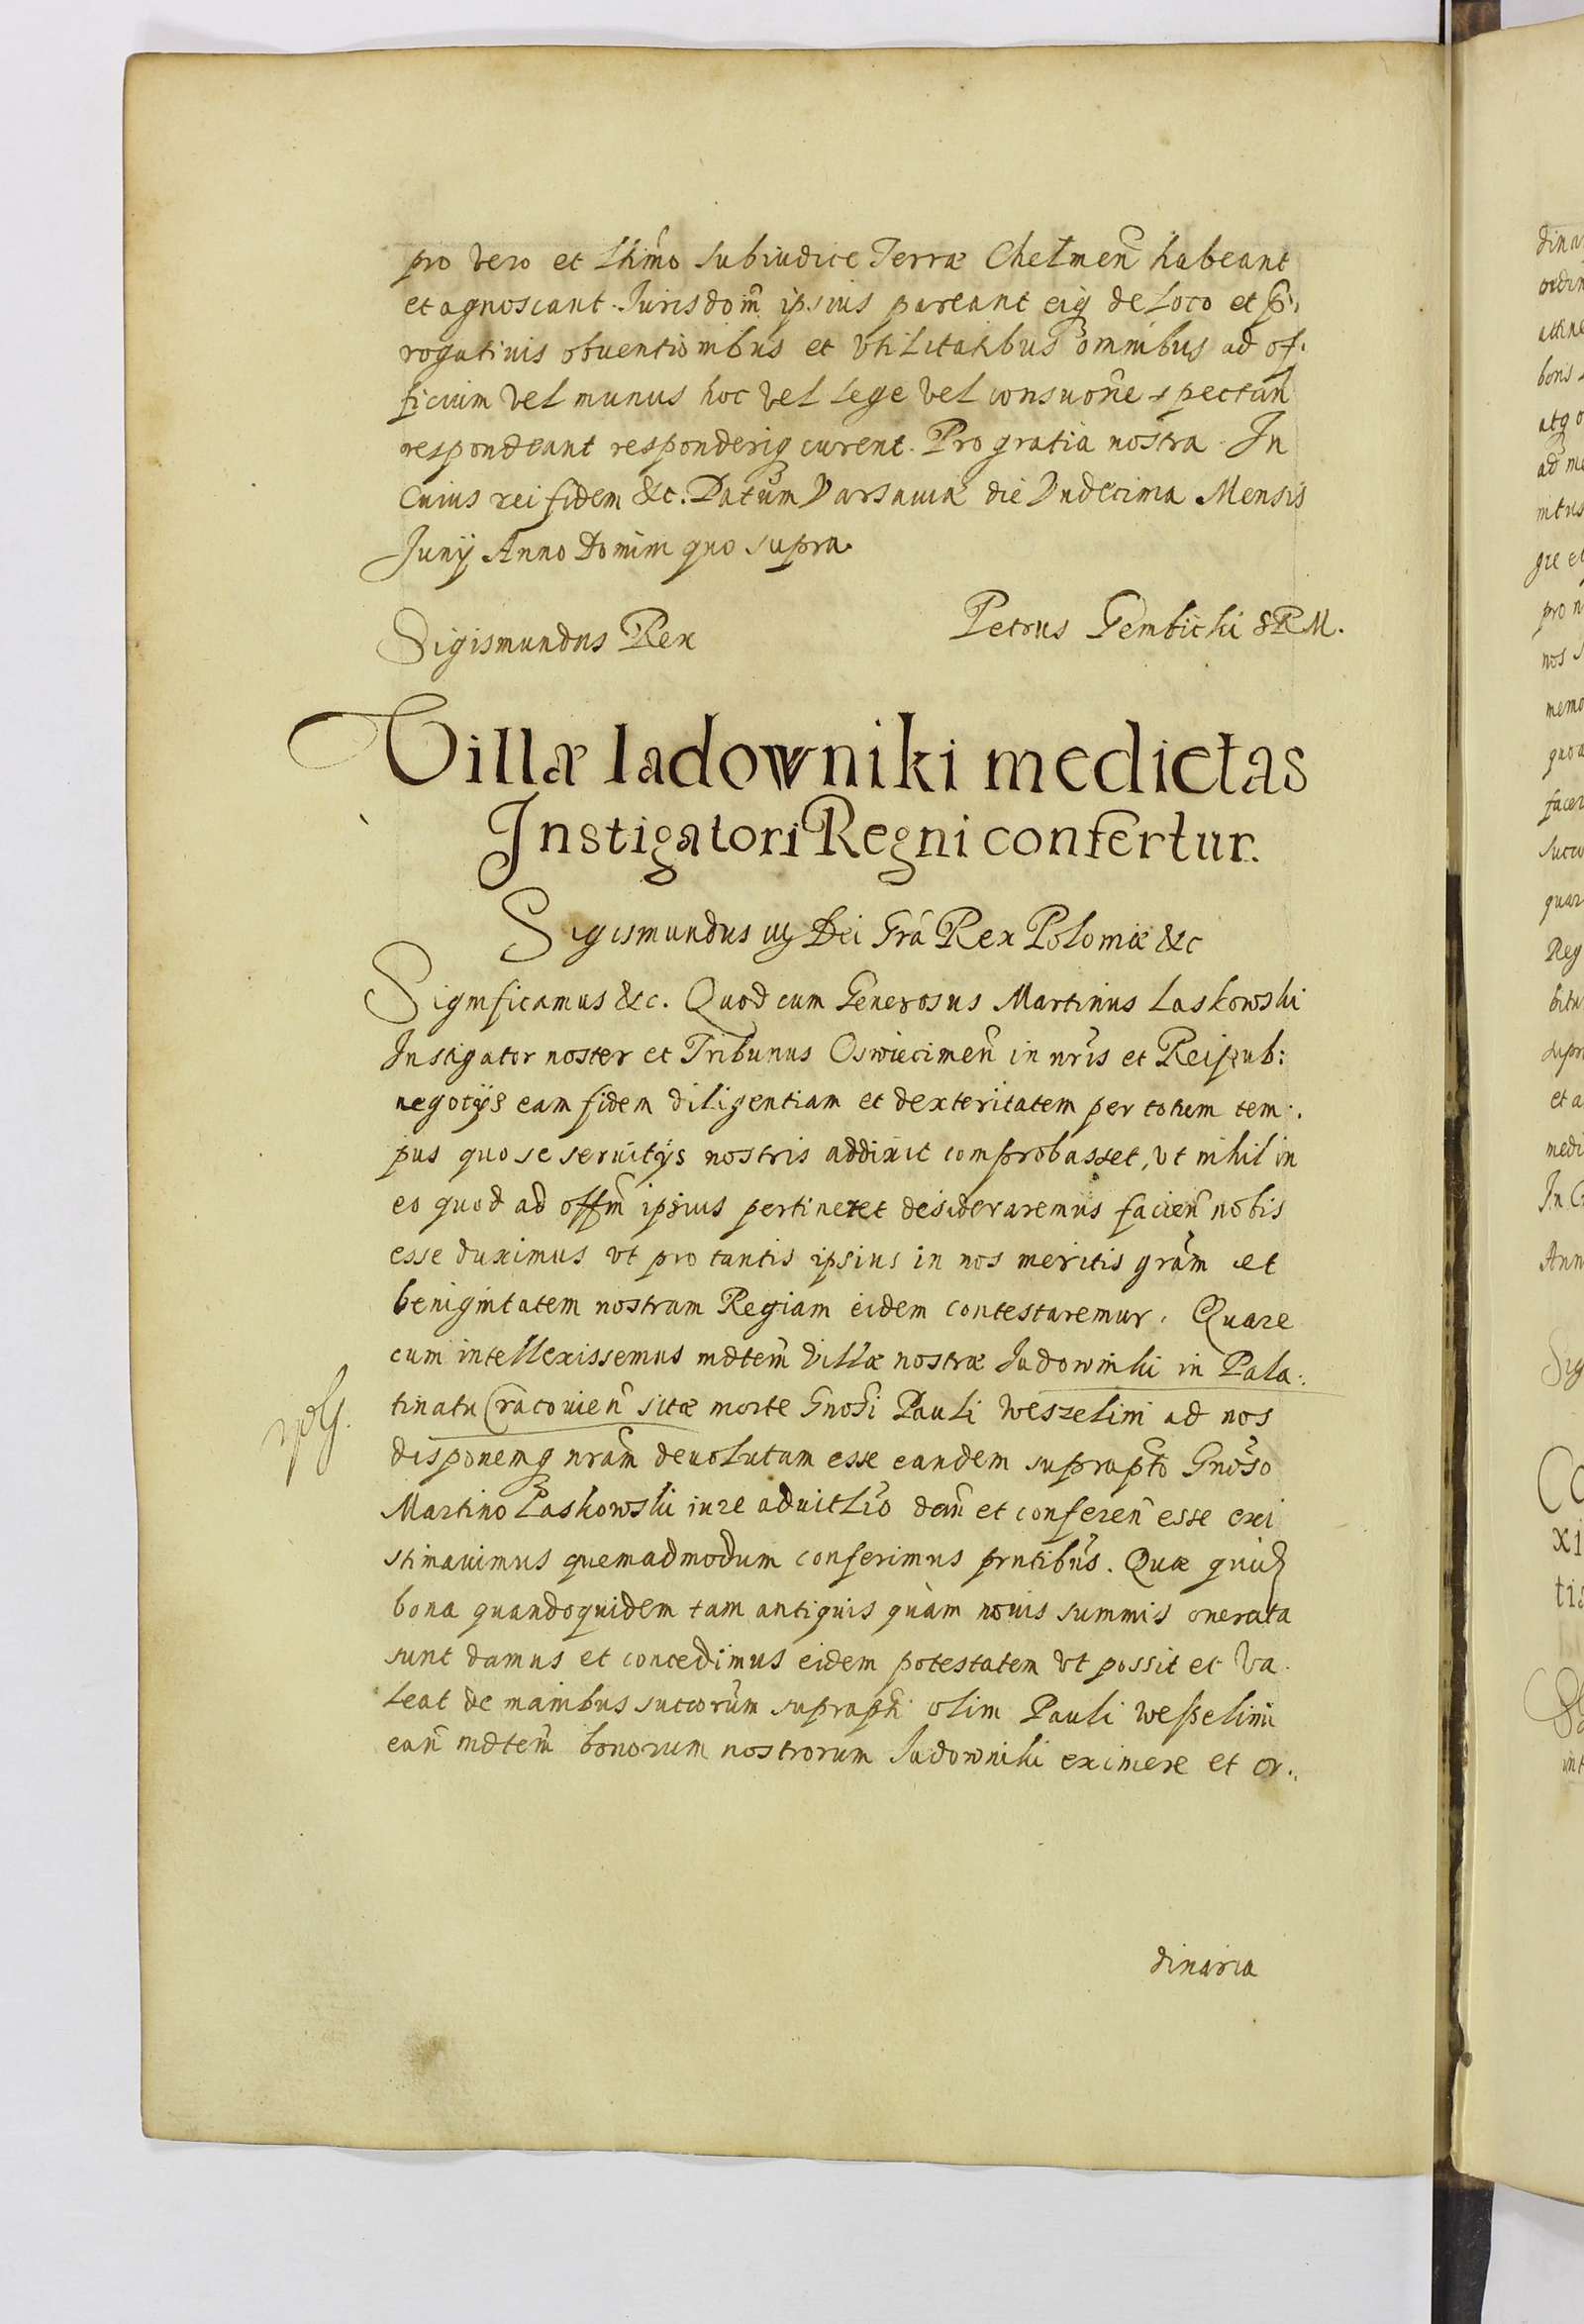 pro vero et lhimo Subiudice Terræ Chelmen̄ habeant
et agnoscant. Jurisdoīm ipsius pareant eiq de Loco et præ.
rogativis obventionibus et vtilitatibus omnibus ad of.
ficium vel munus hoc vel lege vel consuōne spectan̄
respondeant responderiq curent. Pro gratia nostra. In
Cuius rei fidem &c. Datum Varsaviæ die Vndecima Mensis
Junÿ Anno Domini quo supra.
Sigismundus Rex
Petrus Gembicki SRM.
Villæ Iadowniki medietas
Instigatori Regni confertur.
Sigismundus iij Dei Grā Rex Poloniæ &c
Significamus &c. Quod cum Generosus Martinus Laskowski
Instigator noster et Tribunus Oswiecimen̄ in nrīs et Reipub:
negotÿs eam fidem diligentiam et dexteritatem per totum tem.
pus quo se servitÿs nostris addixit comprobasset, vt nihil in
eo quod ad offm̄ ipsius pertineret desideraremus facien̄ nobis
esse duximus vt pro tantis ipsius in nos meritis grām et
benignitatem nostram Regiam eidem contestaremur. Quare
cum intellexissemus mdtem̄ Villæ nostræ Jadowniki in Pala.
tinatu Cracovien̄ sitæ morte Gnosi Pauli Weszelini ad nos
disponemq nrām devolutam esse eandem suprapto Gnoso
Martino Laskowski iure advitlīo dan̄ et conferen̄ esse exi
stimavimus quemadmodum conferimus prntibus. Quæ quid
bona quandoquidem tam antiquis quàm novis summis onerata
sunt damus et concedimus eidem potestatem vt possit et va.
leat de manibus succorūm suprapti olim Pauli Wesselini
ean̄ mdtem̄ bonorum nostrorum Jadowniki eximere et or.
dinaria